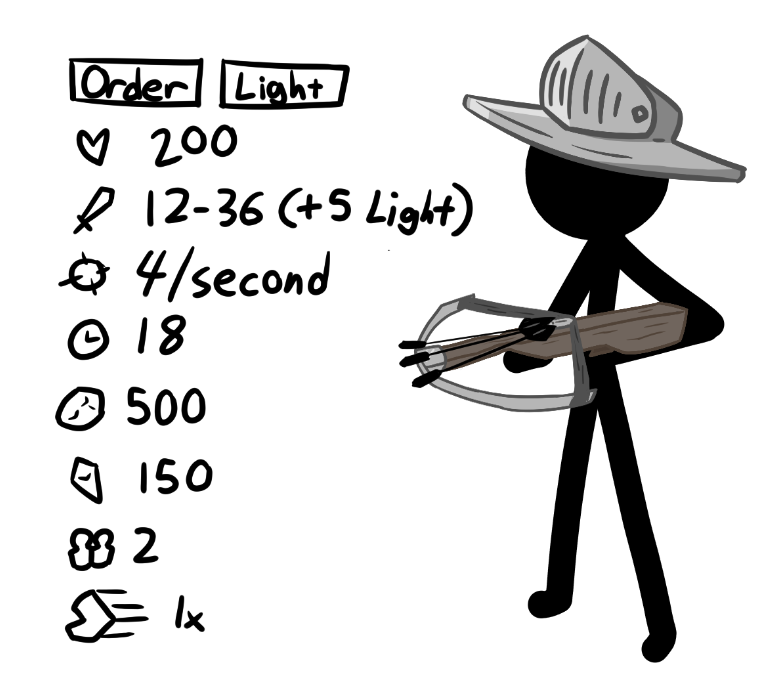 Order Light
200
12-36 (+5 Light)
4/second
18
500
150
2
1x